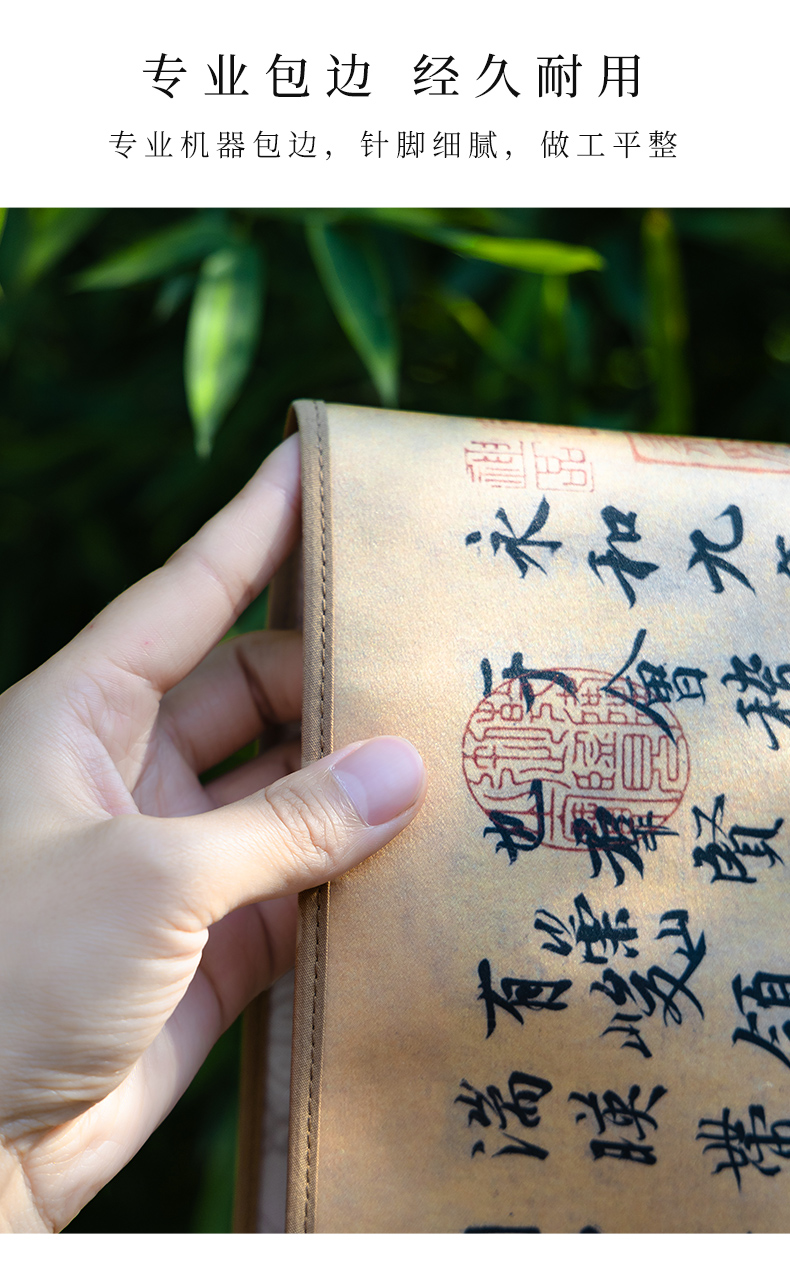 专业包边 经久耐用
专业机器包边，针脚细腻，做工平整
永和九
于會稽
也羣賢
有崇山峻領
湍暎帶